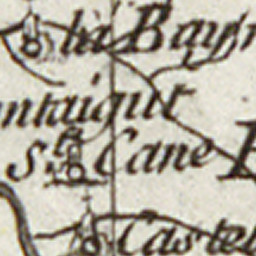 la Bay
ntaigut
Sta Cane
Castel